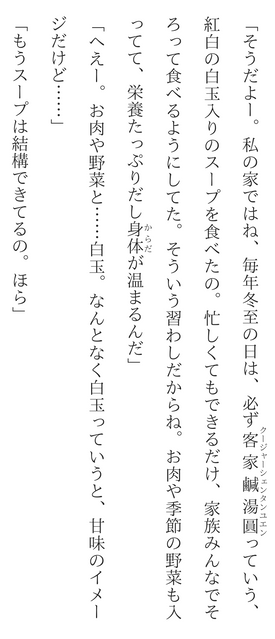 「そうだよー。私の家ではね、毎年冬至の日は、必ず客家鹹湯圓っていう、
クージャーシェンタンユエン
紅白の白玉入りのスープを食べたの。忙しくてもできるだけ、家族みんなでそ
ろって食べるようにしてた。そういう習わしだからね。お肉や季節の野菜も入
ってて、栄養たっぷりだし身体が温まるんだ」
からだ
「へえー。お肉や野菜と……白玉。なんとなく白玉っていうと、甘味のイメー
ジだけど……」
「もうスープは結構できてるの。ほら」